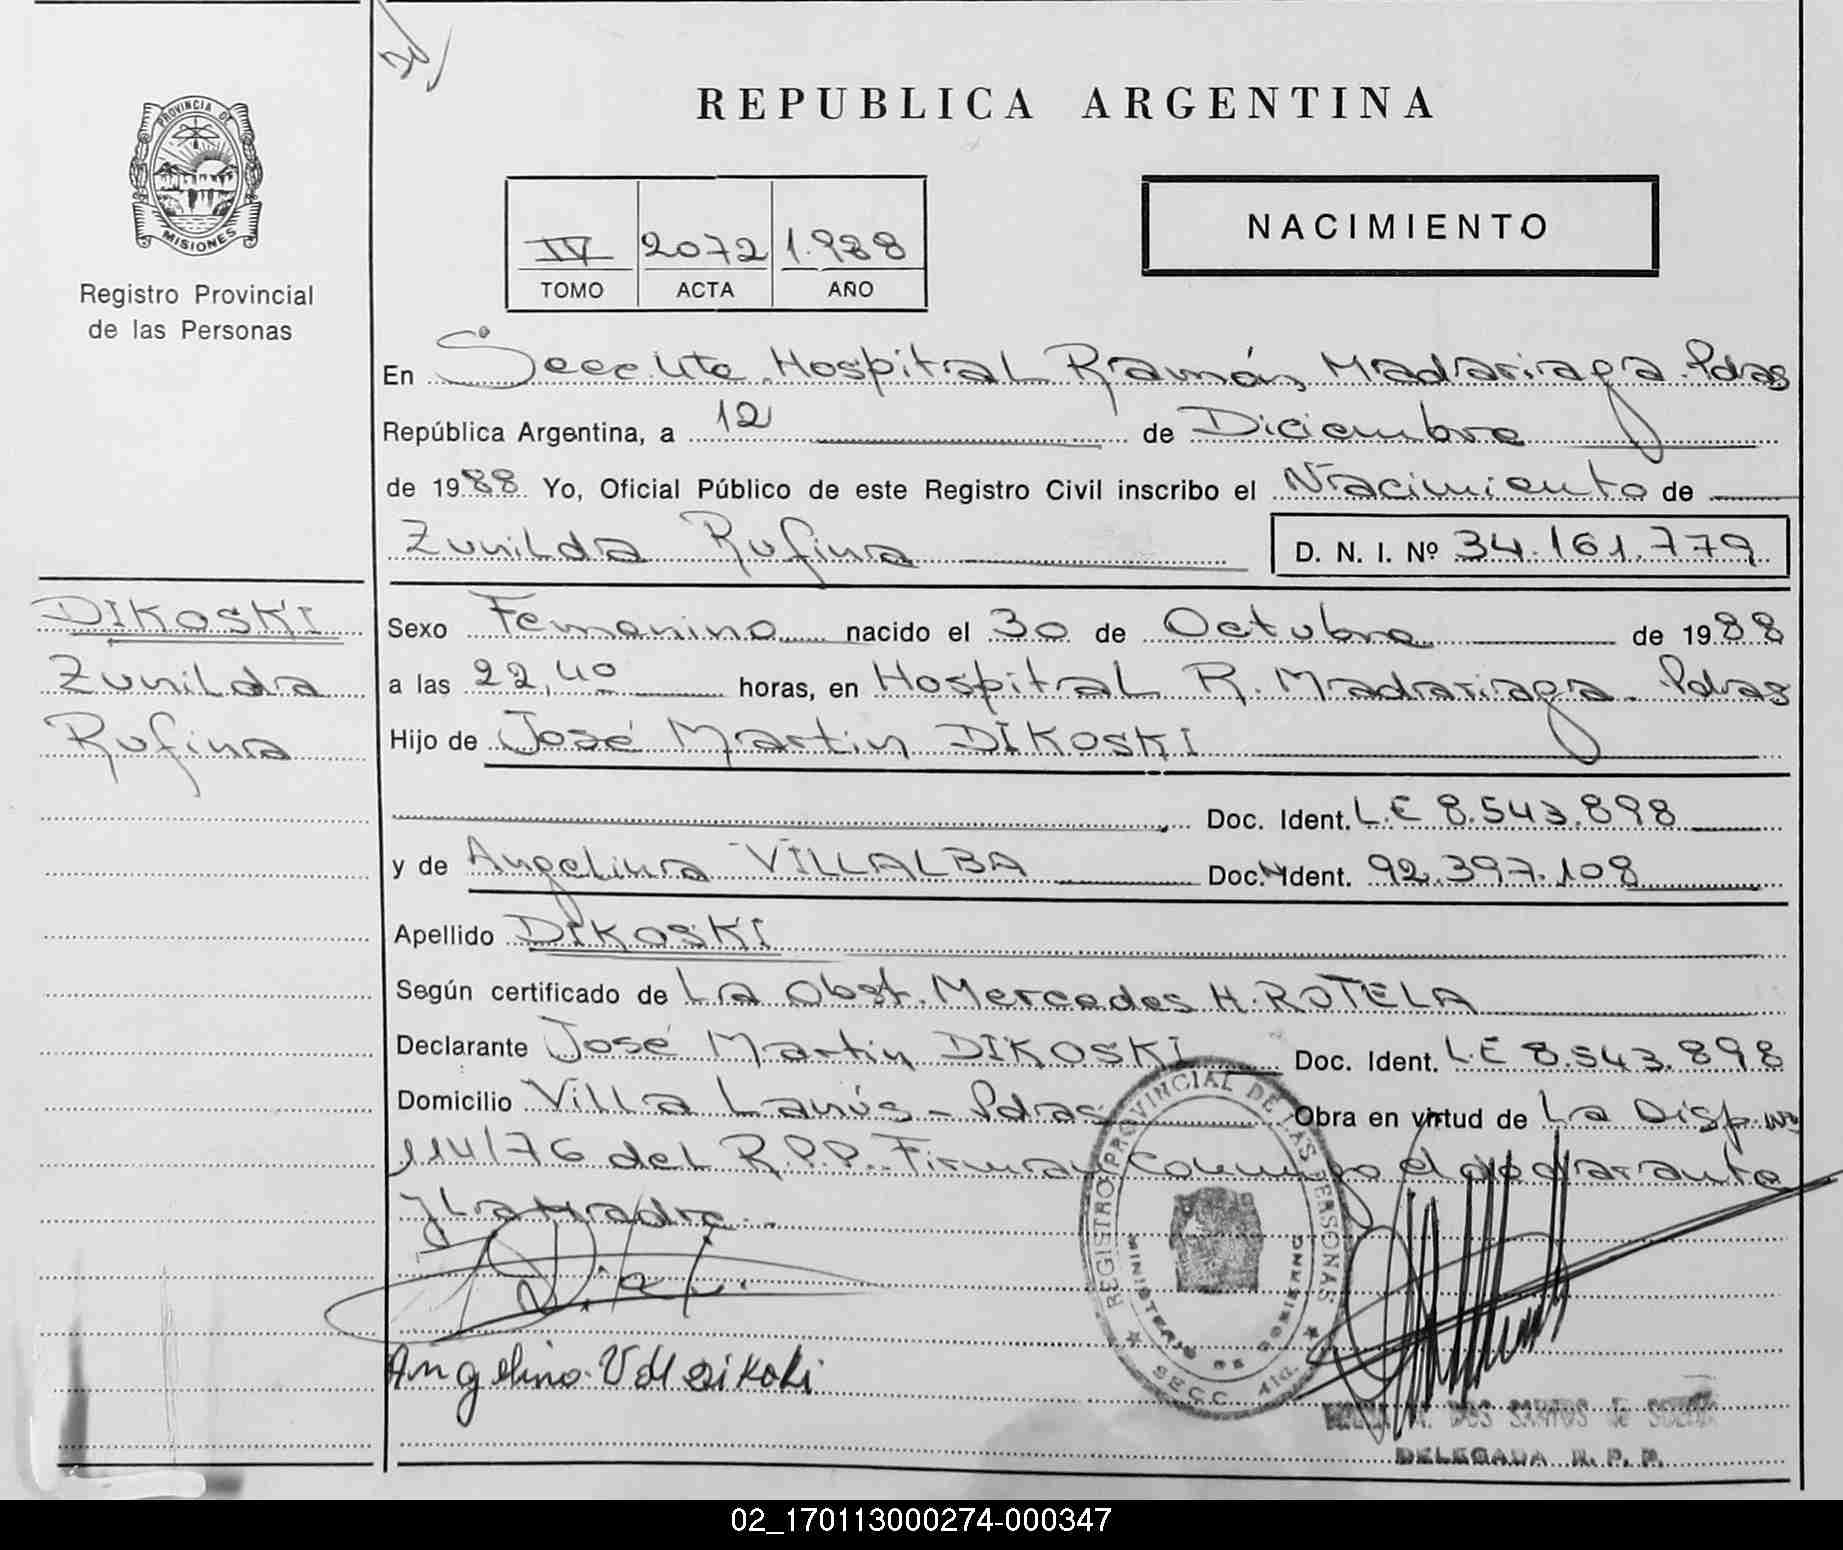 PROVINCIA DE
MISIONES
Registro Provincial
de las Personas
REPUBLICA ARGENTINA
NACIMIENTO
IV 2072 1.988
TOMO ACTA AÑO
En Secc. 4ta. Hospital Ramón Madariaga. Pdas
República Argentina, a 12 de Diciembre
de 1988 Yo, Oficial Público de este Registro Civil inscribo el Nacimiento de
Zunilda Rufina D. N. I. Nº 34.161.779
DIKOSKI
Zunilda
Rufina
Sexo Femenino nacido el 30 de Octubre de 1988
a las 22,40 horas, en Hospital R. Madariaga. Pdas
Hijo de José Martin DIKOSKI
Doc. Ident. L.E 8.543.898
y de Angelina VILLALBA Doc. Ident. 92.397.108
Apellido DIKOSKI
Según certificado de La Obst. Mercedes H. ROTELA
Declarante José Martin DIKOSKI Doc. Ident. L.E 8.543.898
Domicilio Villa Lanús - Pdas Obra en virtud de La Disp. Nº
114/76 del R.P.P. Firman conmigo el declarante
y La Madre.
REGISTRO PROVINCIAL DE LAS PERSONAS
MINISTERIO DE GOBIERNO
SECC. 4ta.
DOS SANTOS de
DELEGADA R. P. P.
02_170113000274-000347